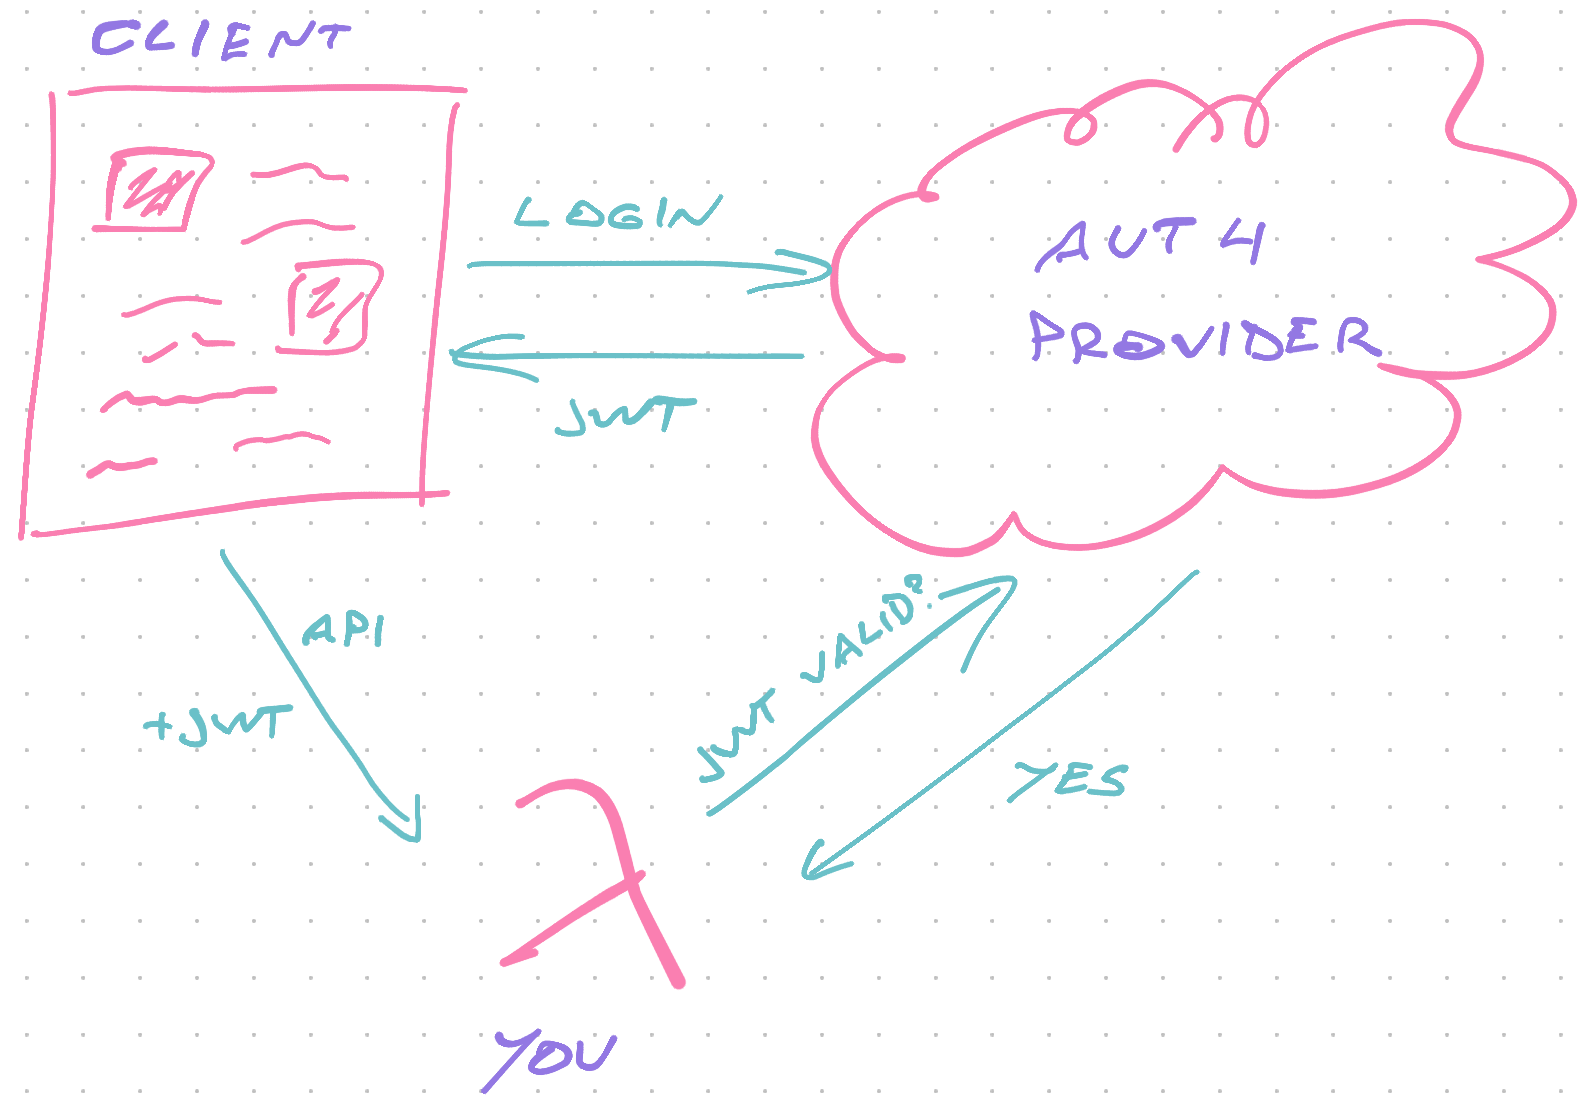 CLIENT
LOGIN
AUTH
PROVIDER
JWT
API
+JWT
JWT VALID?
YES
λ
YOU